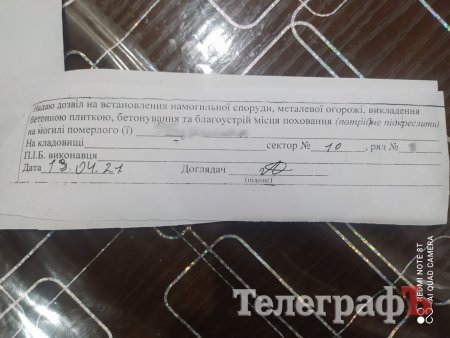 Надаю дозвіл на встановлення намогильної споруди, металевої огорожі, викладення
бетонною плиткою, бетонування та благоустрій місця поховання (потрібне підкреслити)
на могилі померлого (ї)
На кладовищі сектор № 10, ряд №
П.І.Б. виконавця
Дата 13.04.21 Доглядач
(підпис)
Телеграфъ
REDMI NOTE 8T
AI QUAD CAMERA